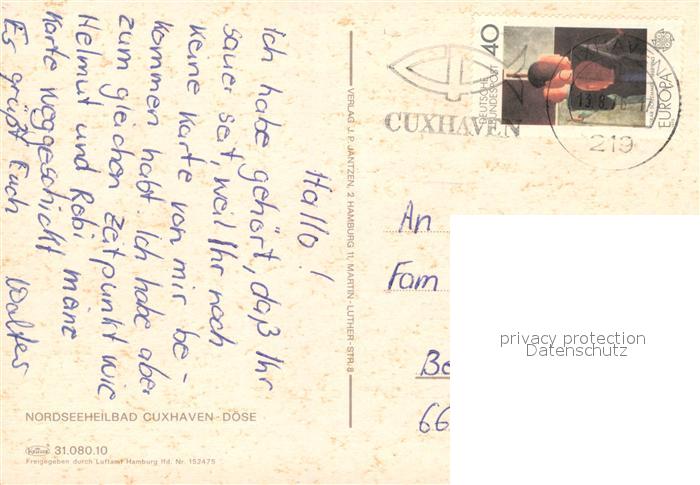 Hallo!
Ich habe gehört, daß Ihr
sauer seit, weil Ihr noch
keine Karte von mir be-
kommen habt. Ich habe aber
zum gleichen Zeitpunkt wie
Helmut und Robi meine
Karte weggeschickt
Es grüßt Euch Walter
NORDSEEHEILBAD CUXHAVEN-DÖSE
31.080.10
Freigegeben durch Luftamt Hamburg lfd. Nr. 152475
VERLAG J. P. JANTZEN, 2 HAMBURG 11, MARTIN-LUTHER-STR. 8
CUXHAVEN
40
DEUTSCHE
BUNDESPOST
EUROPA
13.8.
219
An
Fam
Be
66
privacy protection
Datenschutz